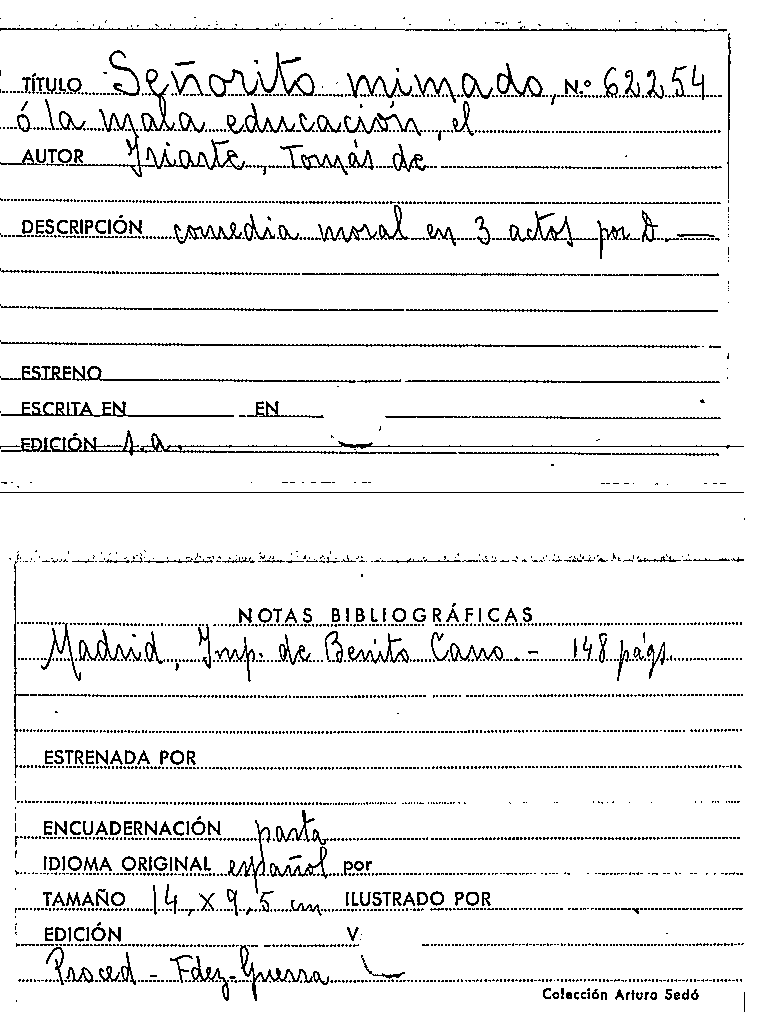 TÍTULO Señorito mimado, N.º 62254
ó la mala educación, el
AUTOR Yriarte, Tomás de
DESCRIPCIÓN comedia moral en 3 actos por D. —
ESTRENO
ESCRITA EN EN
EDICIÓN s.a.
NOTAS BIBLIOGRÁFICAS
Madrid, Imp. de Benito Cano. - 148 págs.
ESTRENADA POR
ENCUADERNACIÓN pasta
IDIOMA ORIGINAL español por
TAMAÑO 14, x 9,5 cm ILUSTRADO POR
EDICIÓN V
Proced - Fdez-Guerra
Colección Arturo Sedó